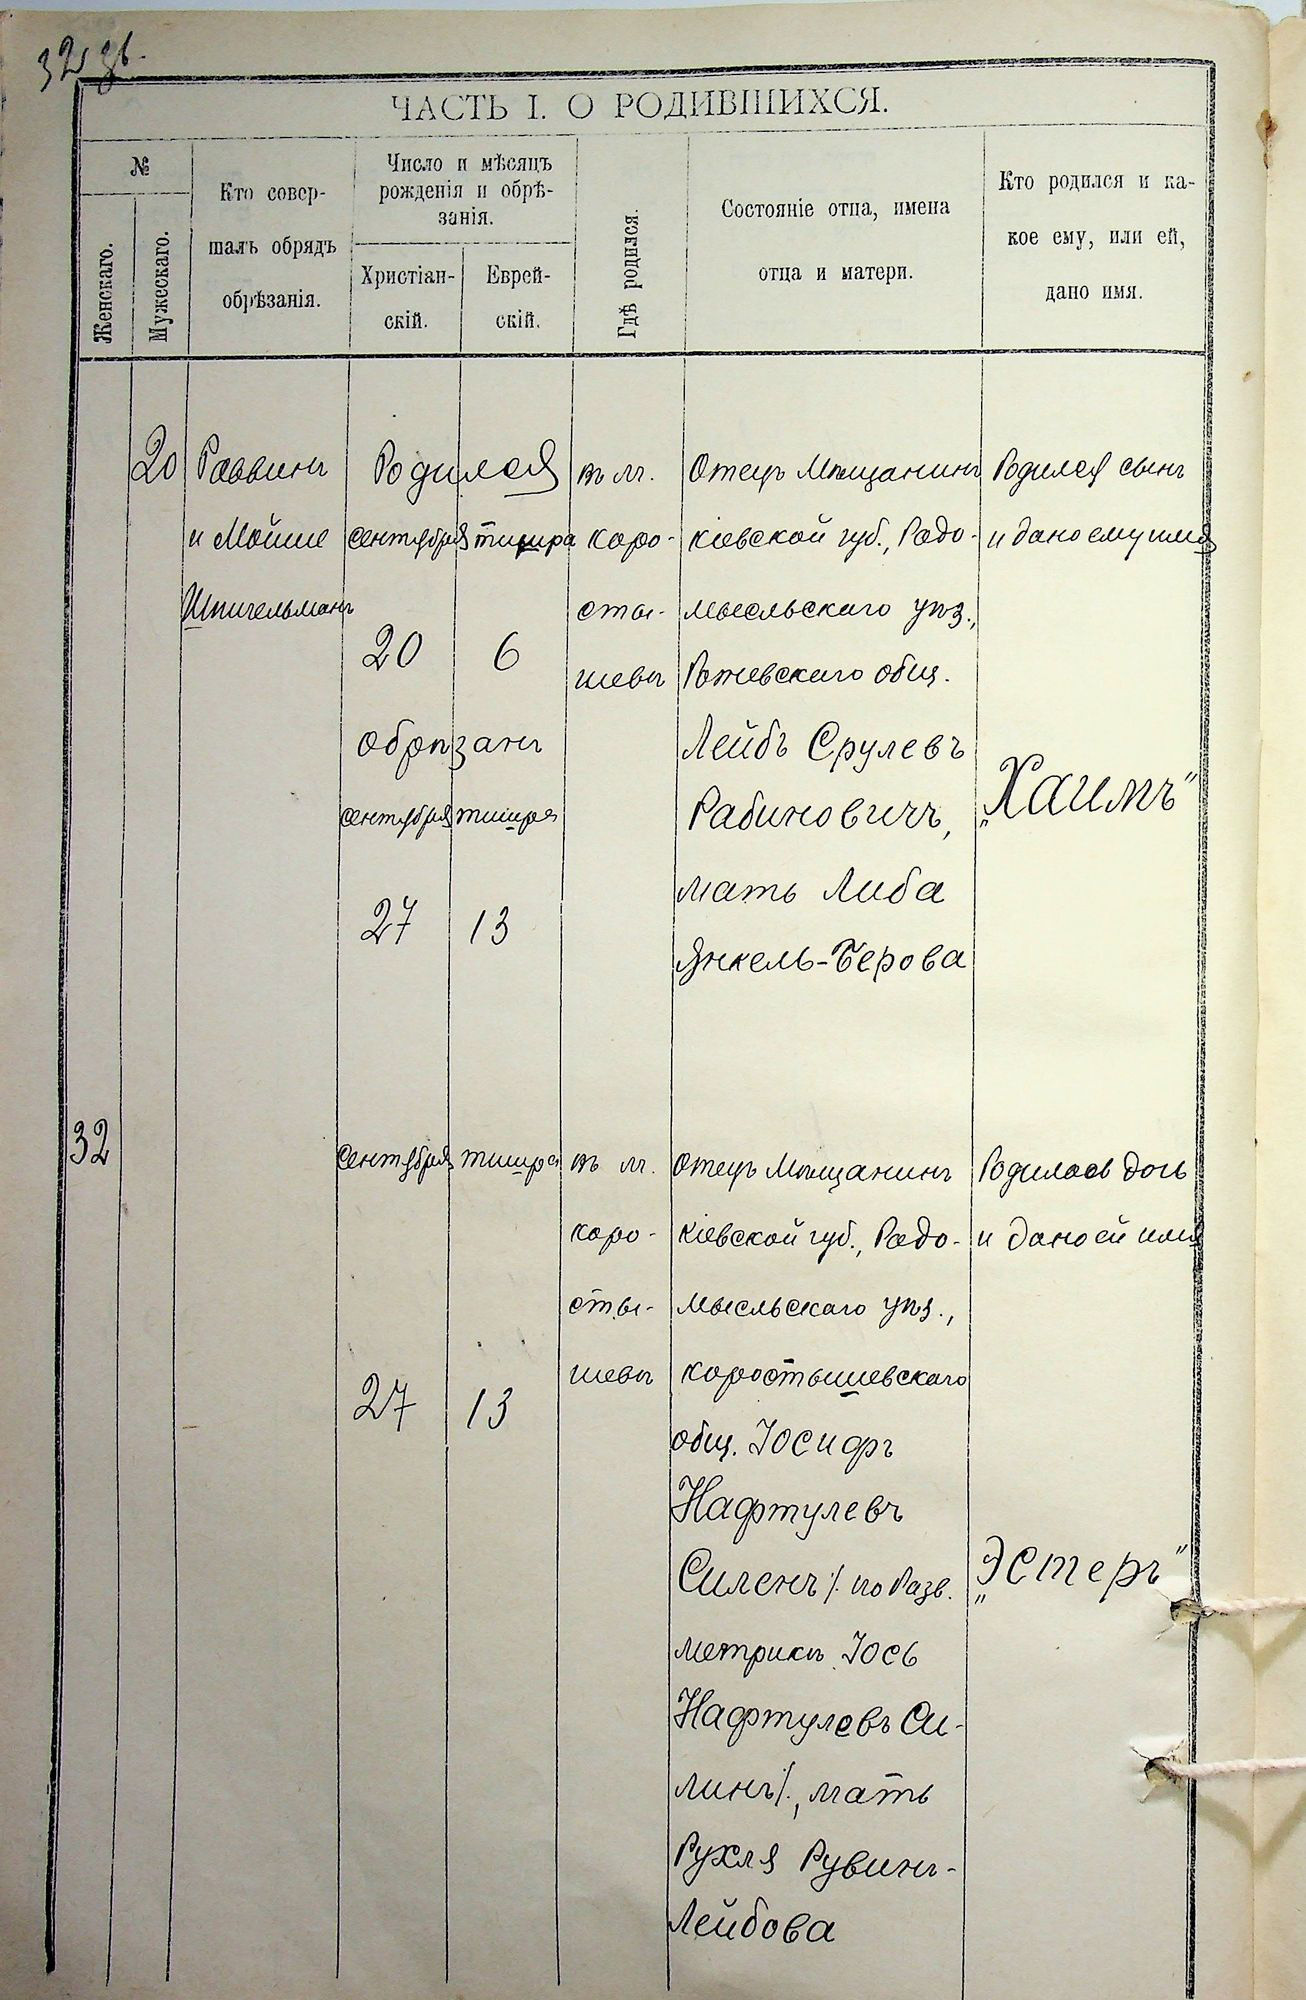 32 зв.
ЧАСТЬ I. О РОДИВШИХСЯ.
№
Женскаго.
Мужескаго.
Кто совер-
шалъ обрядъ
обрѣзанія.
Число и мѣсяцъ
рожденія и обрѣ-
занія.
Христіан-
скій.
Еврей-
скій.
Гдѣ родился.
Состояніе отца, имена
отца и матери.
Кто родился и ка-
кое ему, или ей,
дано имя.
20
Раввинъ
и Мойше
Шпигельманъ
Родился
сентября тишра
20 6
обрѣзанъ
сентября тишра
27 13
въ м.
Коро-
сты-
шевѣ
Отецъ Мѣщанинъ
Кіевской губ., Радо-
мысльскаго уѣз.,
Рожевскаго общ.
Лейбъ Срулевъ
Рабиновичъ,
мать Либа
Янкель-Берова
Родился сынъ
и дано ему имя
„Хаимъ"
32
сентября тишра
27 13
въ м.
Коро-
сты-
шевѣ
Отецъ Мѣщанинъ
Кіевской губ., Радо-
мысльскаго уѣз.,
Коростышевскаго
общ. Іосифъ
Нафтулевъ
Силенъ /. по Разв.
метрикѣ Іось
Нафтулевъ Си-
линъ /., мать
Рухля Рувинъ-
Лейбова
Родилась дочь
и дано ей имя
„Эстеръ"